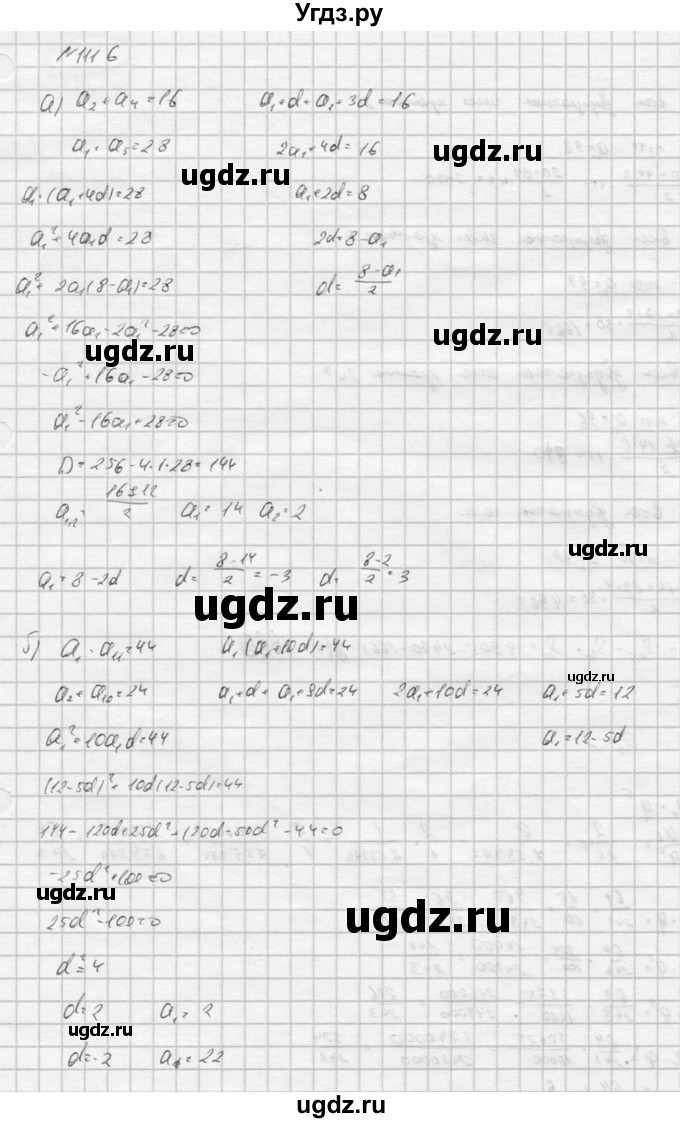 Угдз.ру
№1116
а) a₂ + a₄ = 16   a₁ + d + a₁ + 3d = 16
a₁ · a₅ = 28   2a₁ + 4d = 16
ugdz.ru
ugdz.ru
a₁ · (a₁ + 4d) = 28   a₁ + 2d = 8
a₁² + 4a₁d = 28   2d = 8 - a₁
a₁² + 2a₁(8 - a₁) = 28   d = (8 - a₁)/2
a₁² + 16a₁ - 2a₁² - 28 = 0
ugdz.ru
ugdz.ru
-a₁² + 16a₁ - 28 = 0
a₁² - 16a₁ + 28 = 0
D = 256 - 4·1·28 = 144
a₁,₂ = (16 ± 12)/2   a₁ = 14   a₂ = 2
ugdz.ru
a₁ = 8 - 2d   d = (8 - 14)/2 = -3   d = (8 - 2)/2 = 3
ugdz.ru
б) a₁ · a₁₁ = 44   a₁(a₁ + 10d) = 44
ugdz.ru
a₂ + a₁₀ = 24   a₁ + d + a₁ + 9d = 24   2a₁ + 10d = 24   a₁ + 5d = 12
a₁² + 10a₁d = 44   a₁ = 12 - 5d
ugdz.ru
(12 - 5d)² + 10d(12 - 5d) = 44
144 - 120d + 25d² + 120d - 50d² - 44 = 0
-25d² + 100 = 0
ugdz.ru
ugdz.ru
25d² - 100 = 0
d² = 4
d = 2   a₁ = 2
ugdz.ru
d = -2   a₁ = 22
ugdz.ru
ugdz.ru